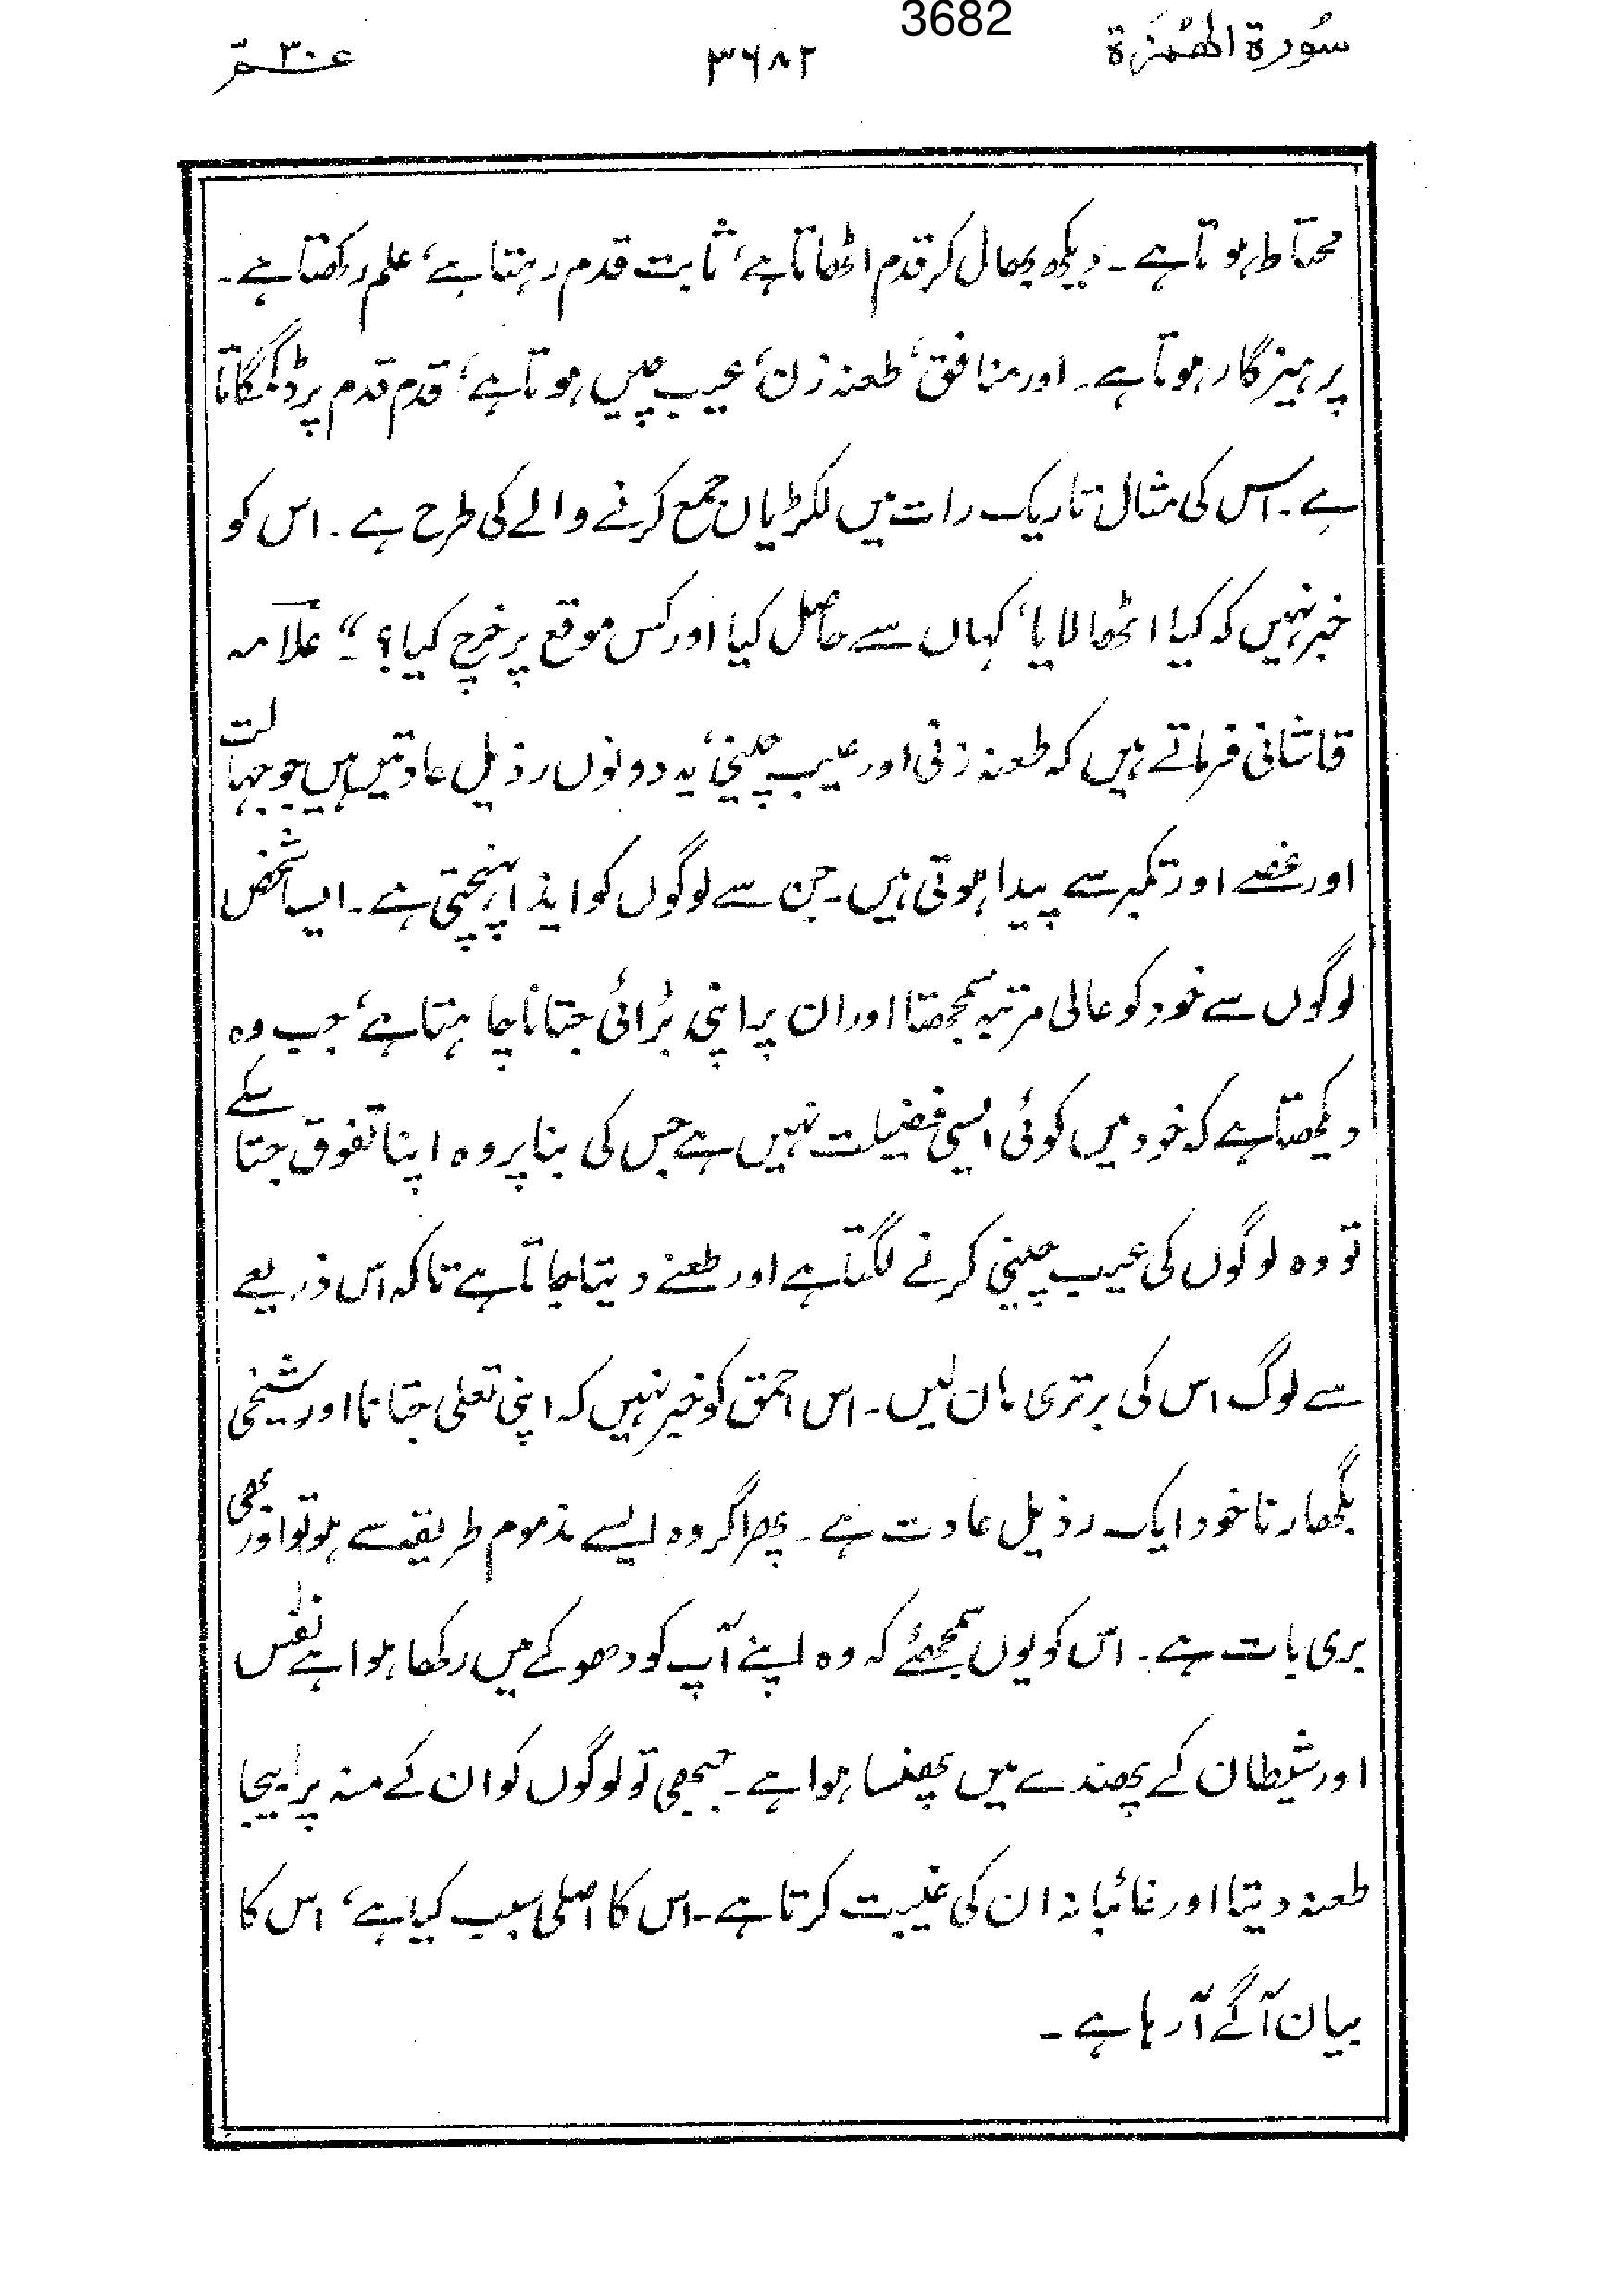 3682
سُورة الھُمَزَة ۳۶۸۲ عـمّ ۳۰
محتاط ہوتا ہے۔ دیکھ بھال کر قدم اٹھاتا ہے، ثابت قدم رہتا ہے، علم رکھتا ہے۔
پرہیزگار ہوتا ہے۔ اور منافق، طعنہ زن، عیب چیں ہوتا ہے، قدم قدم پر ڈگمگاتا
ہے۔ اس کی مثال تاریک رات میں لکڑیاں جمع کرنے والے کی طرح ہے۔ اس کو
خبر نہیں کہ کیا اٹھا لایا، کہاں سے حاصل کیا اور کس موقع پر خرچ کیا؟“ علّامہ
قاشانی فرماتے ہیں کہ طعنہ زنی اور عیب چینی، یہ دونوں رذیل عادتیں ہیں جو جہالت
اور غصے اور تکبر سے پیدا ہوتی ہیں۔ جن سے لوگوں کو ایذا پہنچتی ہے۔ ایسا شخص
لوگوں سے خود کو عالی مرتبہ سمجھتا اور ان پر اپنی بڑائی جتانا چاہتا ہے، جب وہ
دیکھتا ہے کہ خود میں کوئی ایسی فضیلت نہیں ہے جس کی بنا پر وہ اپنا تفوق جتا سکے
تو وہ لوگوں کی عیب چینی کرنے لگتا ہے اور طعنے دیتا جاتا ہے تاکہ اس ذریعے
سے لوگ اس کی برتری مان لیں۔ اس احمق کو خبر نہیں کہ اپنی تعلی جتانا اور شیخی
بگھارنا خود ایک رذیل عادت ہے۔ پھر اگر وہ ایسے مذموم طریقہ سے ہو تو اور بھی
بری بات ہے۔ اس کو یوں سمجھئے کہ وہ اپنے آپ کو دھوکے میں رکھا ہوا ہے نفس
اور شیطان کے پھندے میں پھنسا ہوا ہے۔ جبھی تو لوگوں کو ان کے منہ پر بیجا
طعنہ دیتا اور غائبانہ ان کی غیبت کرتا ہے۔ اس کا اصلی سبب کیا ہے، اس کا
بیان آگے آ رہا ہے۔